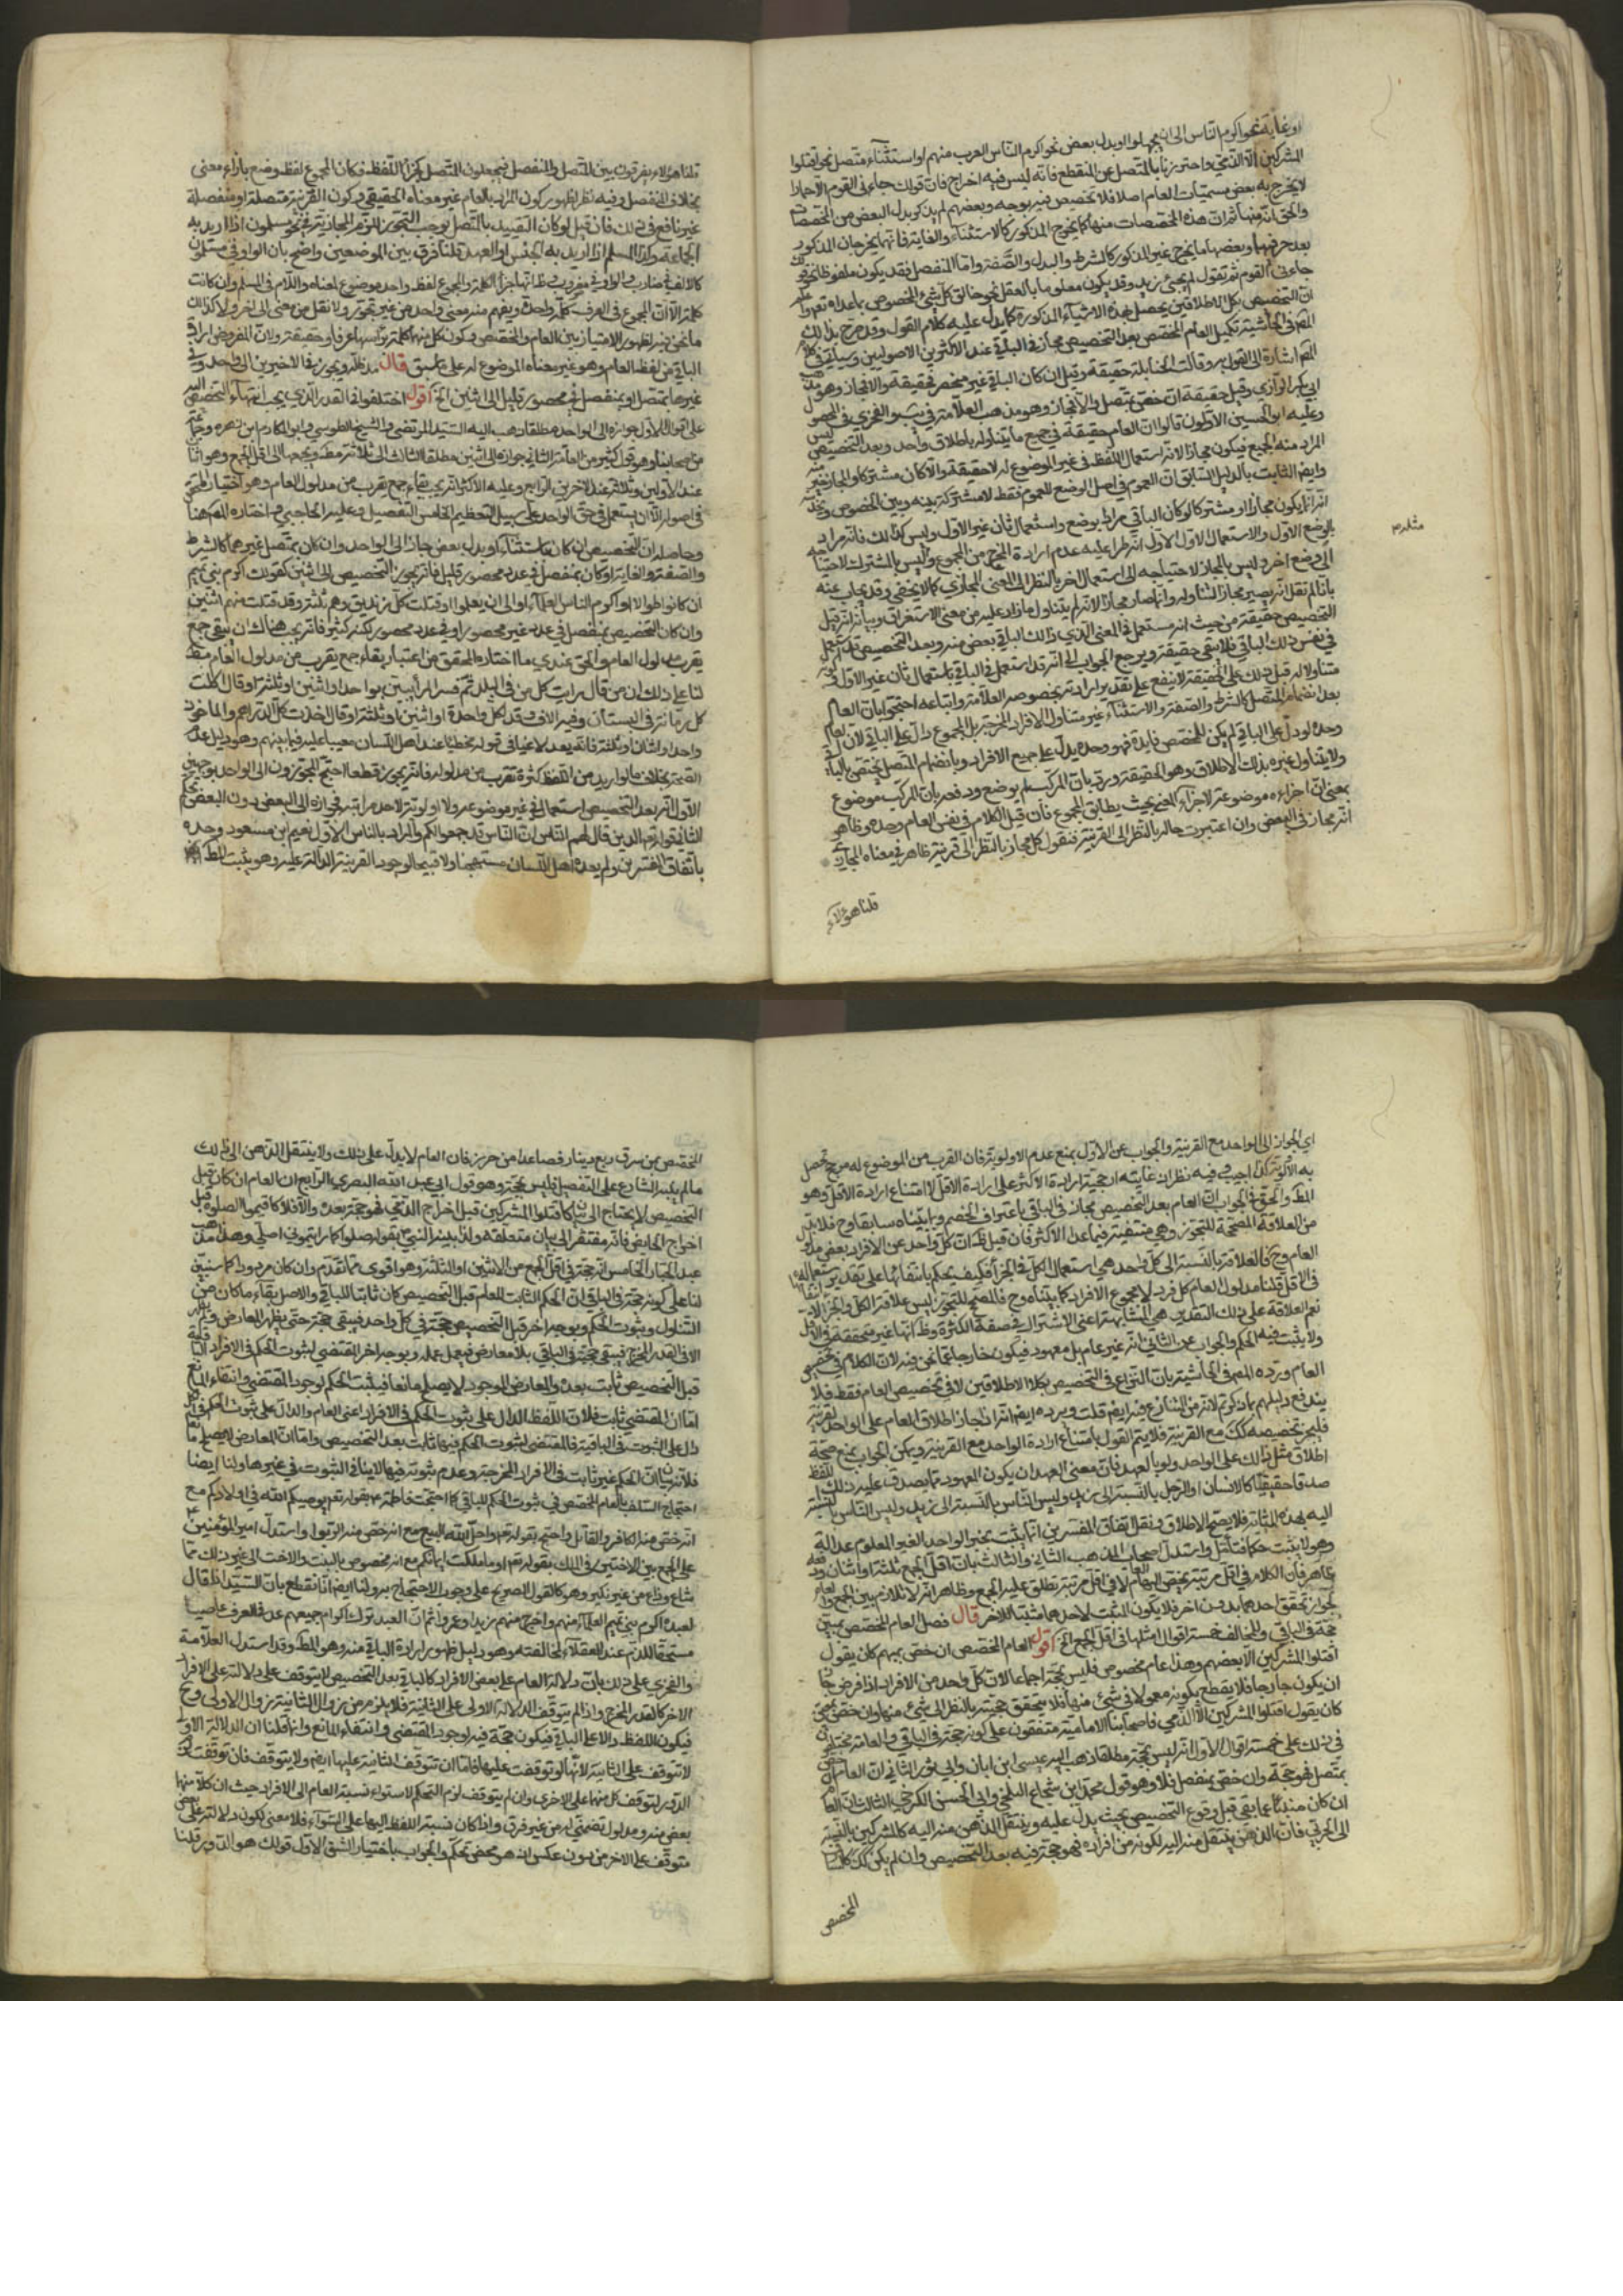 او غاية نحو اكرم الناس الى ان يجهلوا او بدل بعض نحو اكرم الناس العرب منهم او استثناء متصل نحو اقتلوا
المشركين الا الذمي واحترزنا بالمتصل عن المنقطع فانه ليس فيه اخراج فان قولك جاءني القوم الا حمارا
لا يخرج به بعض مسميات العام اصلا فلا تخصيص فيه بوجه وبعضهم لم يذكر بدل البعض من المخصصات
والحق انه منها ثم ان هذه المخصصات منها ما يخرج المذكور كالاستثناء والغاية فانهما يخرجان المذكور
بعد حرفيهما وبعضها ما يخرج غير المذكور كالشرط والبدل والصفة واما المنفصل فقد يكون ملفوظا نحو قولك
جاءني القوم ثم تقول لم يجئ زيد وقد يكون معلوما بالعقل نحو خالق كل شيء المخصوص بما عداه تعم واعلم
ان التخصيص بكل الاطلاقين يحصل بهذه الاشياء المذكورة كما يدل عليه كلام القول وقد صرح بذلك
المص في الحاشية تكميل العام المخصص بعد التخصيص مجاز في الباقي عند الاكثرين الاصوليين وسيأتي في كلام
المص اشارة الى القول به وقالت الحنابلة حقيقة وقيل ان كان الباقي غير منحصر فحقيقة والا فمجاز وهو مذهب
ابي بكر الرازي وقيل حقيقة ان خص بمتصل والا فمجاز وهو مذهب العلامة في
وعليه ابو الحسين الاولون قالوا ان العام حقيقة في جميع ما يتناوله باطلاق واحد وبعد التخصيص ليس
المراد منه الجميع فيكون مجازا لانه استعمال اللفظ في غير الموضوع له لا حقيقة والا كان مشتركا والمجاز خير منه
وايضا الثابت بالدليل السابق ان العموم في اصل الوضع للعموم فقط لا مشتركة بينه وبين الخصوص
انه انما يكون مجازا او مشتركا لو كان الباقي مرادا بوضع واستعمال ثان غير الاول وليس كذلك فانه مراد
بالوضع الاول والاستعمال الاول انه طرا عليه عدم ارادة المخرج من المجموع وليس بالمشترك لاحتياجه
الى وضع اخر وليس بالمجاز لاحتياجه الى استعمال اخر بالنظر الى المعنى المجازي كما لا يخفى وقد يجاب عنه
بانا لم نقل انه يصير مجازا لتناوله وانما صار مجازا لانه لم يتناول ما زاد عليه من معنى الاستغراق وبيانه انه قبل
التخصيص حقيقة من حيث انه مستعمل في المعنى الذي ذلك الباقي بعض منه وبعد التخصيص قد استعمل
في نفس ذلك الباقي فلا يبقى حقيقة ويرجع الجواب الى انه قد استعمل في الباقي باستعمال ثان غير الاول وكونه
متناولا له قبل ذلك على الحقيقة لا ينفع على تقدير ارادته بخصوصه العلامة واتباعه احتجوا بان العام
بعد انضمام المتصل كالشرط والصفة والاستثناء غير متناول للافراد المخرجة بل المجموع دال على الباقي لان العام
وحده لو دل على الباقي لم يكن للمخصص فايدة فهو وحده يدل على جميع الافراد وبانضمام المتصل يختص بالباقي
ولا يتناول غيره بذلك الاطلاق وهو الحقيقة ورد بان المركب لم يوضع ودفع بان المركب موضوع
بمعنى ان اجزاءه موضوعة لاجزاء المعنى بحيث يطابق المجموع فان قيل الكلام في نفس العام وحده وظاهر
انه مجاز في البعض وان اعتبرت حاله بالنظر الى القرينة فنقول كل مجاز بالنظر الى قرينة ظاهر في معناه المجازي
قلنا هؤلاء
قلنا هؤلاء يفرقون بين المتصل والمنفصل فيجعلون المتصل كجزء اللفظ فكان المجموع لفظ وضع بازاء معنى
بخلاف المنفصل وفيه نظر لظهور كون المراد بالعام غير معناه الحقيقي وكون القرينة متصلة او منفصلة
غير نافع في ذلك فان قيل لو كان التقييد بالمتصل يوجب التجوز للزم المجازية في نحو مسلمون اذا اريد به
الجماعة وكذا المسلم اذا اريد به الجنس او العهد قلنا فرق بين الموضعين واضح بان الواو في مسلمون
كالالف في ضارب والواو في مضروب في انها جزء الكلمة والمجموع لفظ واحد موضوع لمعناه واللام في المسلم وان كانت
كلمة الا ان المجموع في العرف كلمة واحدة ويفهم منه معنى واحد من غير تجوز ولا نقل من معنى الى اخر ولا كذلك
ما نحن فيه لظهور الامتياز بين العام والمخصص وكون كل منهما كلمة براسها عرفا وحقيقة ولان المفروض ارادة
الباقي من لفظ العام وهو غير معناه الموضوع له على ما سبق قال مد ظله ويجوز في الاخيرين الى واحد وفي
غيرهما بمتصل او بمنفصل في محصور قليل الى اثنين الخ اقول اختلفوا في القدر الذي يجب انتهاء التخصيص اليه
على اقوال الاول جوازه الى الواحد مطلقا ذهب اليه السيد المرتضى والشيخ الطوسي وابو المكارم ابن زهرة وجماعة
من اصحابنا وهو قول كثير من العامة الثاني جوازه الى اثنين مطلقا الثالث الى ثلاثة مطلقا ومرجعهما الى اقل الجمع وهو اثنان
عند الاولين وثلاثة عند الاخرين الرابع وعليه الاكثر انه يجب بقاء جمع يقرب من مدلول العام وهو اختيار المحقق
في اصوله الا ان يستعمل في حق الواحد على سبيل التعظيم الخامس التفصيل وعليه الحاجبي واختاره المص هنا
وحاصله ان التخصيص ان كان باستثناء او بدل بعض جاز الى الواحد وان كان بمتصل غيرهما كالشرط
والصفة والغاية او كان بمنفصل في عدد محصور قليل فانه يجوز التخصيص الى اثنين كقولك اكرم بني تميم
ان كانوا طوالا او اكرم الناس العلماء او الى ان يعلموا او قتلت كل زنديق وهم ثلثة وقد قتلت منهم اثنين
وان كان التخصيص بمنفصل في عدد غير محصور او في عدد محصور لكنه كثير فانه يجب هناك ان يبقى جمع
يقرب مدلول العام والحق عندي ما اختاره المحقق من اعتبار بقاء جمع يقرب من مدلول العام مطلقا
لنا على ذلك ان من قال رايت كل من في البلد ثم فسر المرئيين بواحد او اثنين او ثلثة او قال اكلت
كل رمانة في البستان وفيه الاف وقد اكل واحدة او اثنين او ثلثة او قال اخذت كل الدراهم والماخوذ
واحد او اثنان او ثلثة فانه يعد لاغيا في قوله مخطئا عند اهل اللسان معيبا عليه فيما بينهم وهو دليل عدم
الصحة بخلاف ما لو اريد من اللفظ كثرة تقرب من مدلوله فانه يجوز قطعا احتج المجوزون الى الواحد بوجهين
الاول انه بعد التخصيص استعمال في غير موضوعه ولا اولوية لاحد مراتبه فجوازه الى البعض دون البعض تحكم
الثاني قوله تعم الذين قال لهم الناس ان الناس قد جمعوا لكم والمراد بالناس الاول نعيم ابن مسعود وحده
باتفاق المفسرين ولم يعده اهل اللسان مستهجنا ولا قبيحا لوجود القرينة الدالة عليه وهو يثبت المط
اي الجواز الى الواحد مع القرينة والجواب عن الاول بمنع عدم الاولوية فان القرب من الموضوع له مرجح تحصل
به الاولوية كذا اجيب وفيه نظر ان غايته ارجحية ارادة الاكثر على ارادة الاقل لا امتناع ارادة الاقل وهو
المط والحق في الجواب ان العام بعد التخصيص مجاز في الباقي باعتراف الخصم وبما بيناه سابقا وح فلا بد
من العلاقة المصححة للتجوز وهي منتفية فيما عدا الاكثر فان قيل ظ ان كل واحد من الافراد بعض مدلول
العام وح فالعلاقة بالنسبة الى كل واحد هي استعمال الكل في الجزء فكيف يحكم بانتفائها على تقدير استعماله
في الاقل قلنا مدلول العام كل فرد لا مجموع الافراد كما بيناه وح فالمصحح للتجوز ليس علاقة الكل والجزء
نعم العلاقة على ذلك التقدير هي المشابهة اعني الاشتراك في صفة الكثرة وظ انها غير متحققة في الاقل
ولا يثبت فيه الحكم والجواب عن الثاني انه غير عام بل معهود فيكون خارجا عما نحن فيه لان الكلام في تخصيص
العام ورده المص في الحاشية بان النزاع في التخصيص بكلا الاطلاقين لا في تخصيص العام فقط فلا
يندفع دليلهم بما ذكرتم لانه من المتنازع فيه ايضا قلت ويرده ايضا انه اذا جاز اطلاق العام على الواحد لقرينة
فليجز تخصيصه كك مع القرينة فلا يتم القول بامتناع ارادة الواحد مع القرينة ويمكن الجواب بمنع صحة
اطلاق مثل ذلك على الواحد ولو بالعهد فان معنى العهد ان يكون المعهود مما يصدق عليه ذلك اللفظ
صدقا حقيقيا كالانسان او الرجل بالنسبة الى زيد وليس الناس بالنسبة الى زيد وليس الناس بالنسبة
اليه بهذه المثابة فلا يصح الاطلاق ونقل اتفاق المفسرين انما يثبت بخبر الواحد الغير المعلوم عدالته
وهو لا يثبت حكما فتامل واستدل اصحاب المذهب الثاني والثالث بان اقل الجمع ثلثة او اثنان ودفعه
ظاهر فان الكلام في اقل مرتبة يخص اليها العام لا في اقل مرتبة تطلق عليه الجمع وظاهر انه لا تلازم بين الجمع والعام
لجواز تحقق احدهما بدون اخر فلا يكون المثبت لاحدهما مثبتا للاخر قال فصل العام المخصص بمبين
حجة في الباقي والمخالف خمسة اقوال امثلها في اقل الجمع الخ اقول العام المخصص ان خص بمبهم كان يقول
اقتلوا المشركين الا بعضهم وهذا عام مخصوص فليس بحجة اجماعا لان كل واحد من الافراد اذا فرض جاز
ان يكون خارجا فلا يقطع بكونه معمولا في شيء منها فلا تتحقق حجيته بالنظر الى شيء منها وان خص بمعين
كان يقول اقتلوا المشركين الا الذمي فاصحابنا الامامية متفقون على كونه حجة في الباقي والعامة مختلفون
في ذلك على خمسة اقوال الاول انه ليس بحجة مطلقا ذهب اليه عيسى ابن ابان وابي ثور الثاني ان العام ان خص
بمتصل فهو حجة وان خص بمنفصل فلا وهو قول محمد ابن شجاع البلخي وابي الحسن الكرخي الثالث ان العام
ان كان منبئا عما يبقى قبل وقوع التخصيص بحيث يدل عليه وينتقل الذهن منه اليه كالمشركين بالنسبة
الى الحربي فان الذهن ينتقل منه اليه لكونه من افراده فهو حجة فيه بعد التخصيص وان لم يكن كك كالسارق
المخصص
المخصص بمن سرق ربع دينار فصاعدا من حرز فان العام لا يدل على ذلك ولا ينتقل الذهن الى ذلك
ما لم ينبه الشارع على التفصيل فليس بحجة وهو قول ابي عبد الله البصري الرابع ان العام ان كان قبل
التخصيص لا يحتاج الى بيان كاقتلوا المشركين قبل اخراج الذمي فهو حجة بعده والا فلا كاقيموا الصلوة قبل
اخراج الحايض فانه مفتقر الى بيان متعلقه ولذا بينه النبي ص بقوله صلوا كما رايتموني اصلي وهذا مذهب
عبد الجبار الخامس انه حجة في اقل الجمع من الاثنين او الثلثة وهو اقوى مما تقدم وان كان مردودا كما سنبين
لنا على كونه حجة في الباقي ان الحكم الثابت للعام قبل التخصيص كان ثابتا للباقي والاصل بقاء ما كان من
التناول وبثبوت الحكم وبوجه اخر قبل التخصيص حجة في كل واحد فيبقى حجة حتى يظهر المعارض ولم يظهر
الا في القدر المخرج فيبقى حجة في الباقي بلا معارض فيعمل عمله وبوجه اخر المقتضي لثبوت الحكم في الافراد الباقية
قبل التخصيص ثابت بعده والمعارض الموجود لا يصلح مانعا فيثبت الحكم لوجود المقتضي وانتفاء المانع
اما ان المقتضي ثابت فلان اللفظ الدال على ثبوت الحكم في الافراد اعني العام والدال على ثبوت الحكم في الكل
دال على الثبوت في الباقية فالمقتضي لثبوت الحكم فيها ثابت بعد التخصيص واما ان المعارض لا يصلح مانعا
فلانه بيان ان الحكم غير ثابت في الافراد المخرجة وعدم ثبوته فيها لا ينافي الثبوت في غيرها ولنا ايضا
احتجاج السلف بالعام المخصص في ثبوت الحكم للباقي كما احتجت فاطمة ع بقوله تعم يوصيكم الله في اولادكم مع
انه خص منه الكافر والقاتل واحتج بقوله تعم واحل الله البيع مع انه خص منه الربوا واستدل امير المؤمنين ع
على الجمع بين الاختين في الملك بقوله تعم او ما ملكت ايمانكم مع انه مخصوص بالبنت والاخت الى غير ذلك مما
شاع وذاع من غير نكير وهو كالقول الصريح على وجوب الاحتجاج به ولنا ايضا انا نقطع بان السيد اذا قال
لعبده اكرم بني تميم العلماء منهم واخرج منهم زيدا وعمروا ثم ان العبد ترك اكرام جميعهم عد في العرف عاصيا
مستحقا للذم عند العقلاء لمخالفته وهو دليل ظهور ارادة الباقي منه وهو المط وقد استدل العلامة
والفخري على ذلك بان دلالة العام على بعض الافراد كالباقي بعد التخصيص لا يتوقف على دلالته على الافراد
الاخر كالقدر المخرج واذا لم يتوقف الدلالة الاولى على الثانية فلا يلزم من زوال الثانية زوال الاولى وح
فيكون اللفظ دالا على الباقي فيكون حجة فيه لوجود المقتضي وانتفاء المانع وانما قلنا ان الدلالة الاولى
لا تتوقف على الثانية لانها لو توقفت عليها فاما ان تتوقف الثانية عليها ايضا ولا يتوقف فان توقفت لزم
الدور لتوقف كل منهما على الاخرى وان لم يتوقف لزم التحكم لاستواء نسبة العام الى الافراد حيث ان كلا منهما
بعض منه ومدلول تضمني له من غير فرق واذا كان نسبة اللفظ اليهما على السواء فلا معنى لكون دلالته على بعض
متوقف على الاخر من دون عكس اذ هو محض تحكم والجواب باختيار الشق الاول قولك هو الدور قلنا